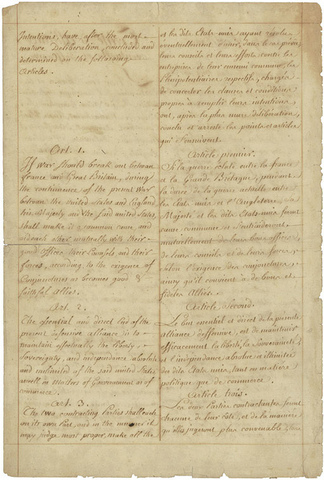 Intentions, have after the most
mature Deliberation, concluded and
determined on the following
Articles.
Art. 1.
If war should break out between
france and Great Britain, during
the continuance of the present War
between the United States and England
his Majesty and the said united States,
shall make it a common cause, and
aid each other mutually with their
good Offices, their Counsels and their
forces, according to the exigence of
Conjunctures as becomes good &
faithful Allies.
Art. 2.
The Essential and direct End of the
present defensive alliance is to
maintain effectually the liberty,
Sovereignty, and independance absolute
and unlimited of the said united States,
as well in Matters of Gouvernment as of
commerce.
Art. 3.
The two contracting Parties shall each
on its own Part, and in the manner it
may judge most proper, make all the
et les dits Etats unis ayant resolu
eventuellement d'unir, dans le cas prevu
leurs conseils et leurs efforts contre les
entreprises de leur ennemi commun, les
Plenipotentiaires respectifs, chargés
de concerter les clauses et conditions
propres à remplir leurs intentions
ont, après la plus mure déliberation,
conclu et arreté les points et articles
qui s'ensuivent.
Article premier.
Si la guerre éclate entre la france
et la grande Bretagne, pendant
la durée de la guerre actuelle entre
les Etats unis et l'Angleterre, Sa
Majesté et les dits Etats unis feront
cause commune et s'entraideront
mutuellement de leurs bons offices,
de leurs conseils et de leurs forces,
selon l'exigence des conjonctures,
ainsy qu'il convient à de bons et
fideles Alliés.
Article Second.
Le but essentiel et direct de la presente
alliance deffensive, est de maintenir
efficacement la liberté, la Souveraineté
et l'independance absolue et illimitée
des dits Etats unis, tant en matiere
politique que de commerce.
Article trois.
Les deux Parties contractantes feront
chacune de leur coté, et de la maniere
qu'elles jugeront plus convenable, tous